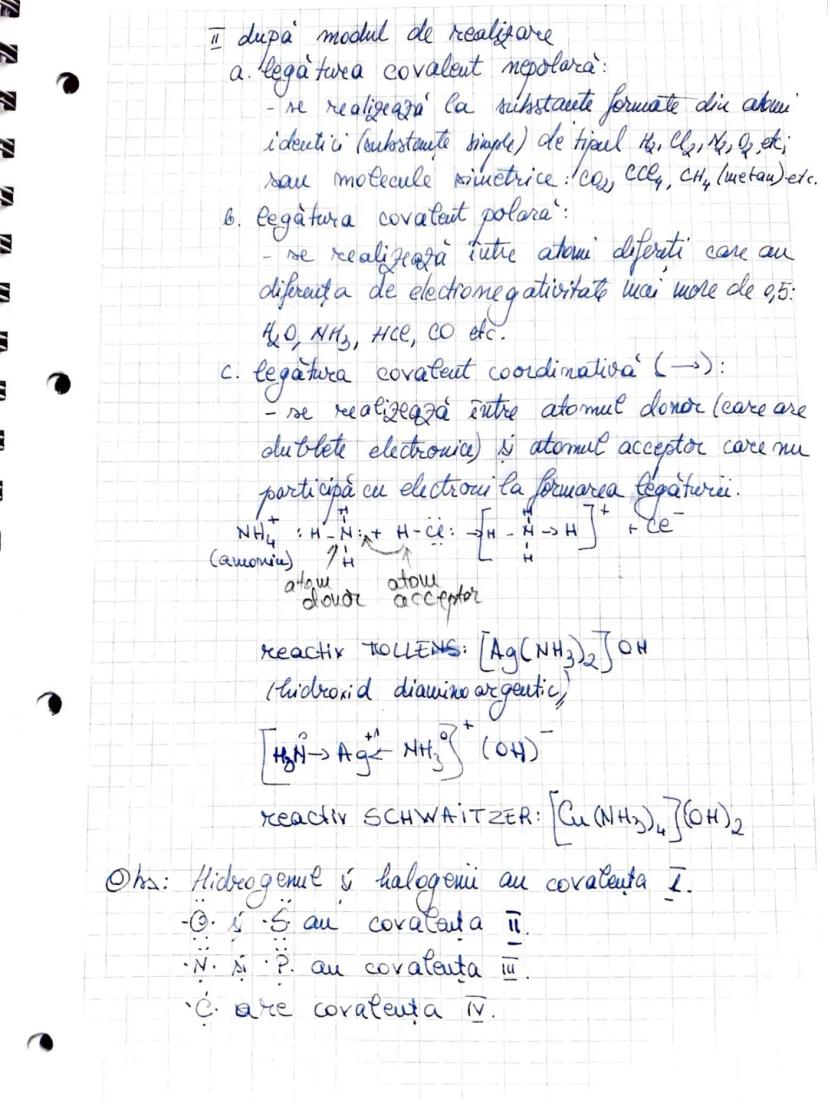 II după modul de realizare
a. legătura covalent nepolară:
- se realizează la substante formate din atomi
identici (substanțe simple) de tipul H₂, Cl₂, N₂, O₂ etc;
sau molecule simetrice: CO₂, CCl₄, CH₄ (metan) etc.
b. legătura covalent polară:
- se realizează între atomi diferiti care au
diferența de electronegativitate mai mare de 0,5:
H₂O, NH₃, HCl, CO etc.
c. legătura covalent coordinativă (→):
- se realizează între atomul donor (care are
dublete electronice) și atomul acceptor care nu
participă cu electroni la formarea legăturii.
H H
NH₄⁺ : H - N: + H - Cl: → [H - N → H]⁺ + Cl⁻
(amoniu) H H
atom donor atom acceptor
reactiv TOLLENS: [Ag(NH₃)₂]OH
(hidroxid diaminoargentic)
[H₃N⁰ → Ag⁺¹ ← NH₃⁰]⁺ (OH)⁻
reactiv SCHWAITZER: [Cu(NH₃)₄](OH)₂
Obs: Hidrogenul și halogenii au covalența I.
-O. și .S au covalența II.
.N. și .P. au covalența III.
.C. are covalența IV.